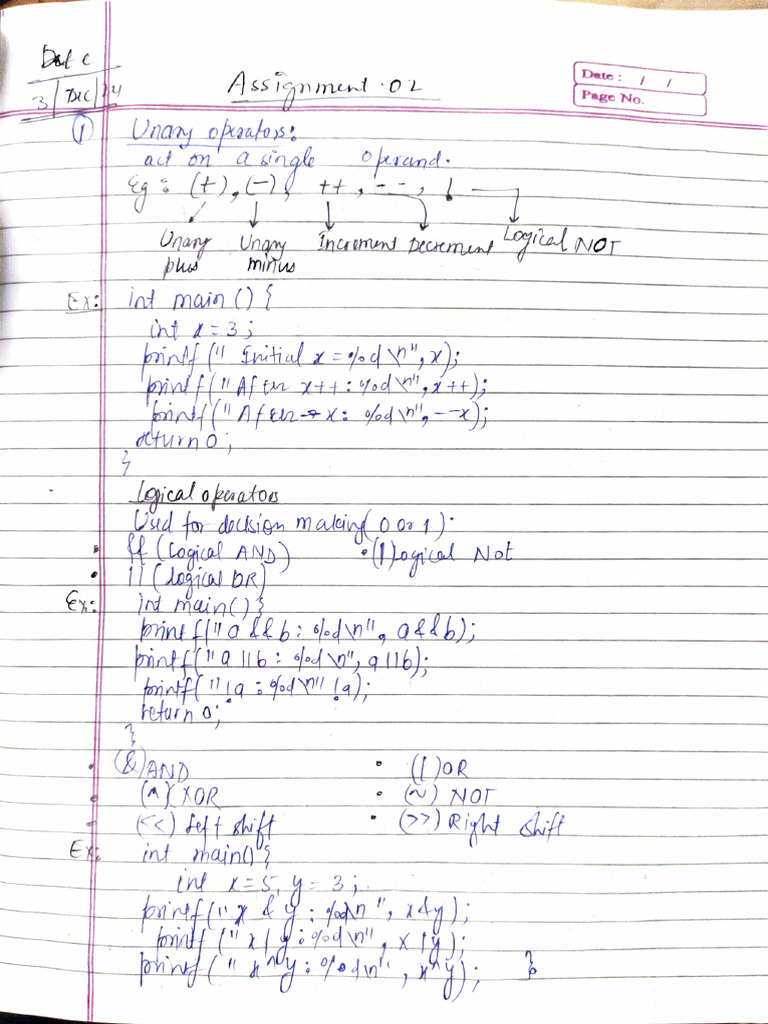 Date
3 | Dec | 24
Assignment.02
Date: / /
Page No.
① Unary operators:
act on a single operand.
Eg: (+), (-), ++, --, !
Unary plus Unary minus Increment Decrement Logical NOT
Ex: int main () {
int x = 3;
printf (" Initial x = %d \n", x);
printf (" After x++ : %d \n", x++);
printf (" After --x : %d \n", --x);
return 0;
}
Logical operators
Used for decision making (0 or 1).
• && (Logical AND) • (!) Logical Not
• || (logical OR)
Ex: int main () {
printf (" a && b : %d \n", a && b);
printf (" a || b : %d \n", a || b);
printf (" !a : %d \n" !a);
return 0;
}
• (&) AND • (|) OR
• (^) XOR • (~) NOT
- (<<) Left shift • (>>) Right shift
Ex: int main() {
int x = 5, y = 3;
printf (" x & y : %d \n ", x & y);
printf (" x | y : %d \n", x | y);
printf (" x ^ y : %d \n", x ^ y); }